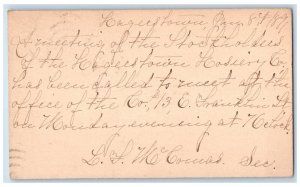 Hagerstown Jan. 8th/89
A meeting of the Stockholders
of the Hagerstown Hosiery Co.
has been called to meet at the
office of the Co. 13 E. Franklin St
on Monday evening at 7 o'clock.
L. S. McComas. Sec.